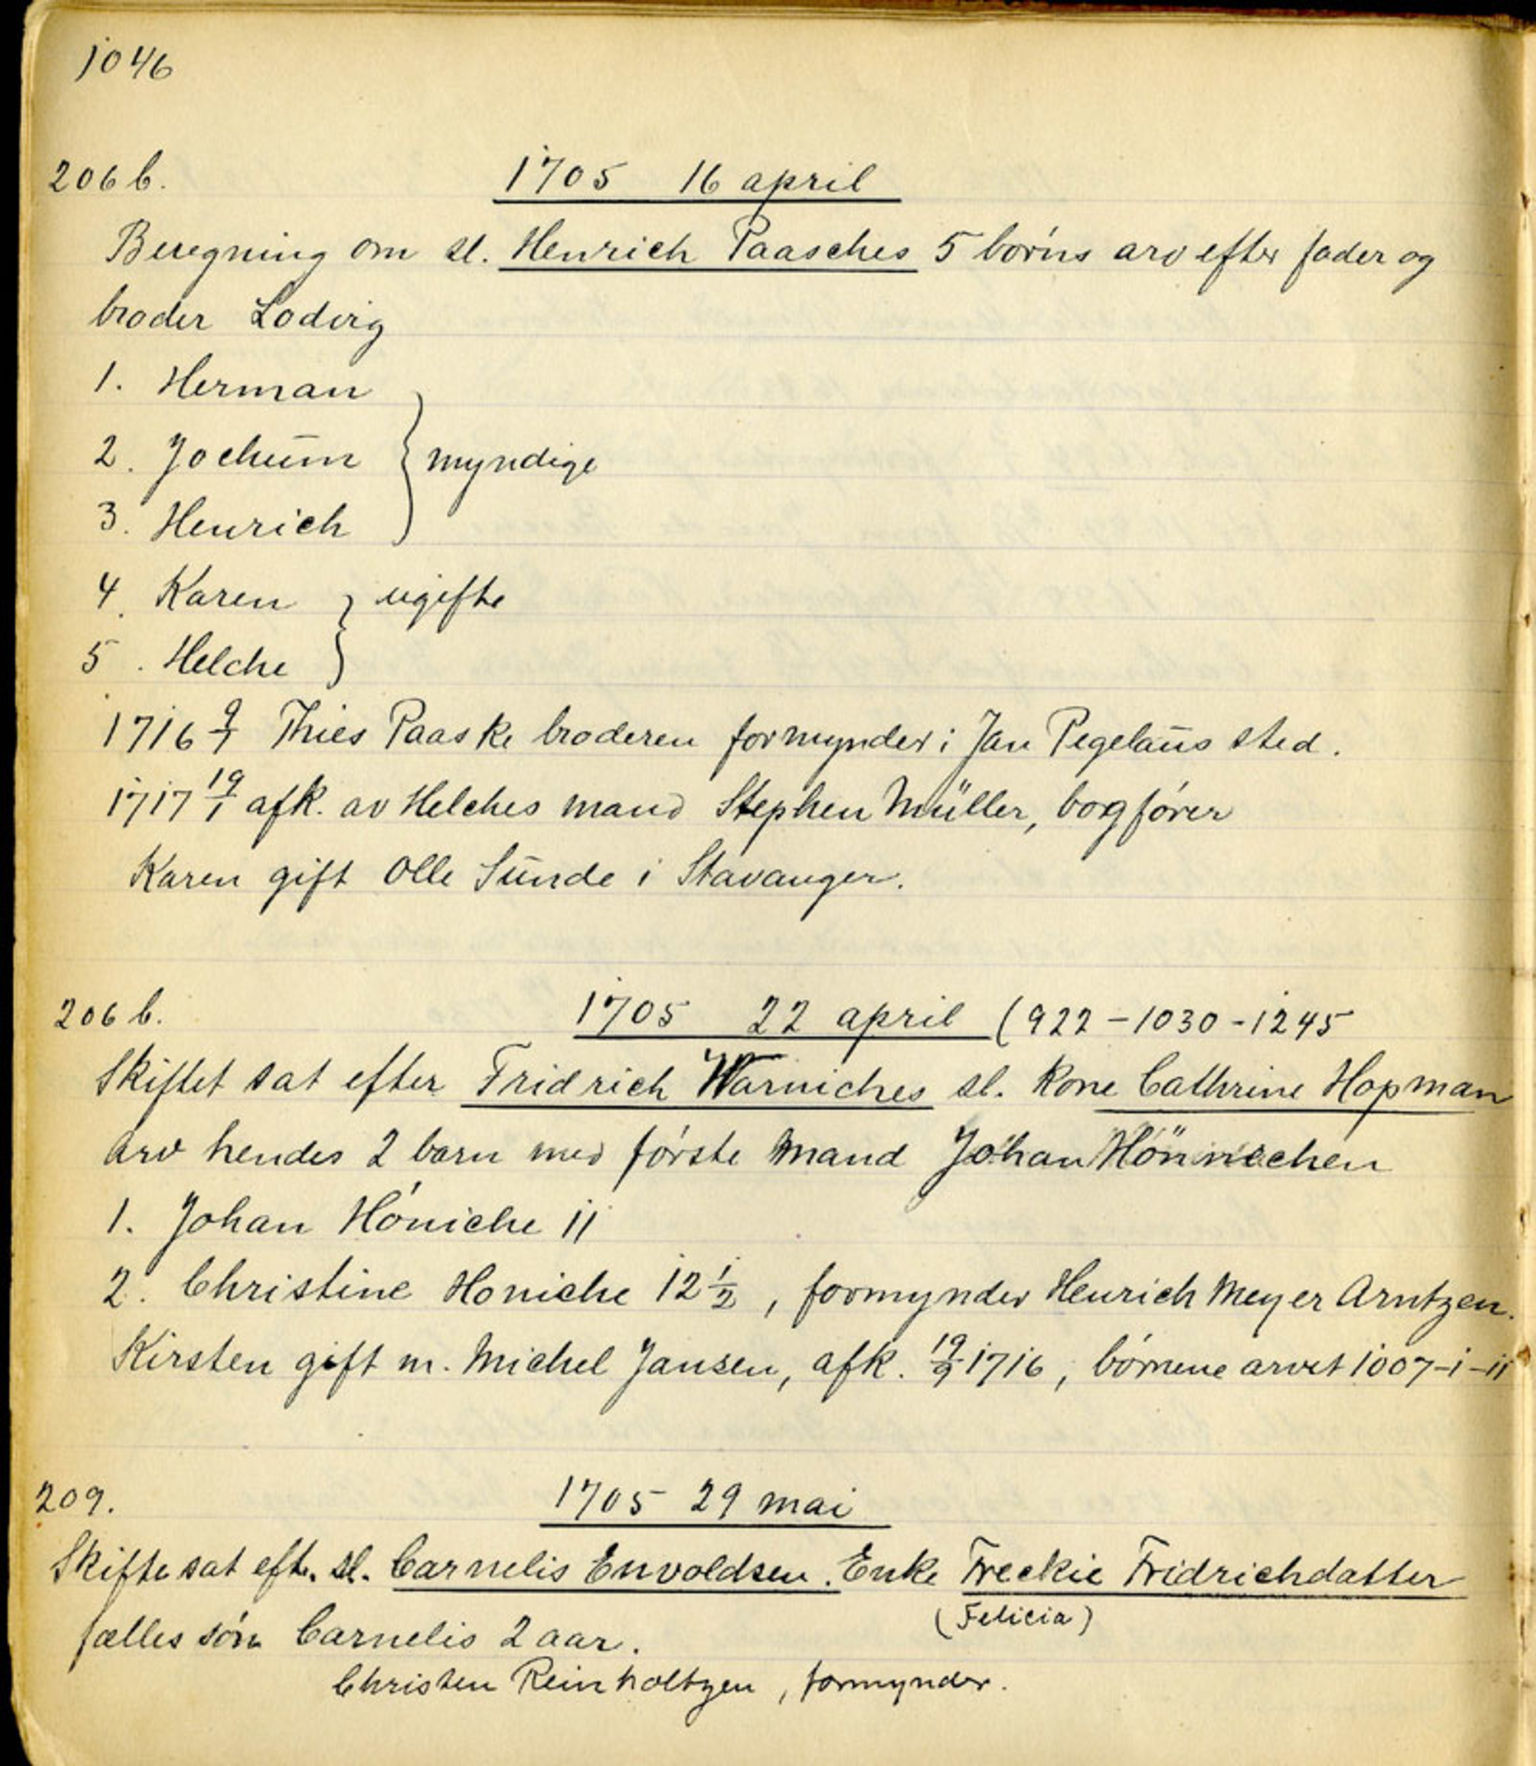 1046
206 b. 1705 16 april
Beregning om sl. Henrich Paasches 5 børns arv efter fader og
broder Lodvig
1. Herman
2. Jochum } myndige
3. Henrich
4. Karen } ugifte
5. Helche
1716 9/7 Thies Paaske broderen formynder i Jan Pegelaus sted.
1717 19/1 afk. av Helches mand Stephen Müller, bogfører
Karen gift Olle Sunde i Stavanger.
206 b. 1705 22 april (922-1030-1245
Skiftet sat efter Fridrich Warniches sl. kone Cathrine Hopman
arv hendes 2 barn med første mand Johan Hönnichen
1. Johan Høniche 11
2. Christine Honiche 12 1/2, formynder Henrich Meyer Arntzen.
Kirsten gift m. Michel Jansen, afk. 19/9 1716, børnene arvet 1007-1-11
209. 1705 29 mai
Skifte sat eft. sl. Carnelis Envoldsen. Enke Freckie Fridrichdatter
(Felicia)
fælles søn Carnelis 2 aar.
Christen Reinholtzen, formynder.